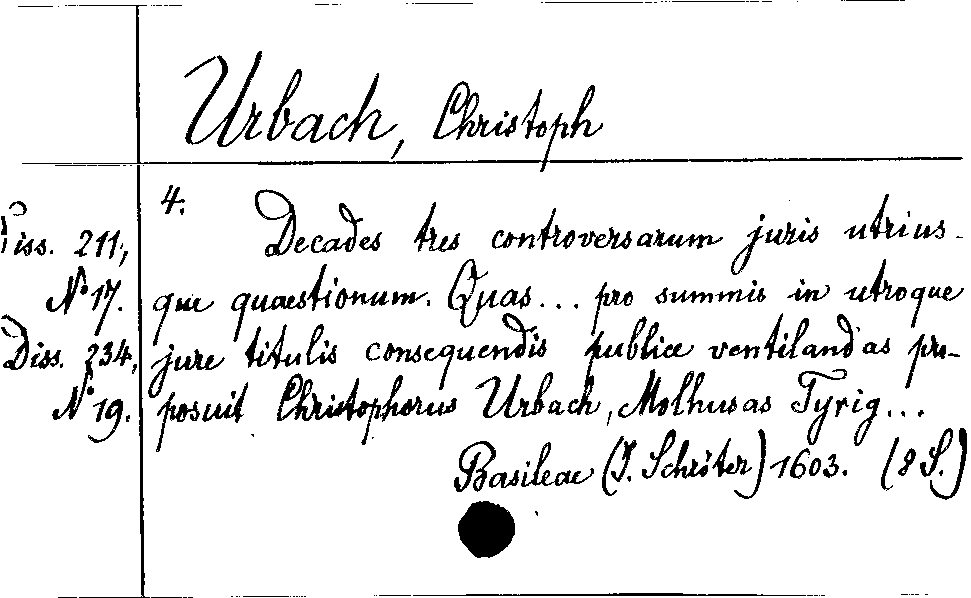 Urbach, Christoph
4.
Diss. 211, Decades tres controversarum juris utrius-
No 17. que quaestionum. Quas... pro summis in utroque
Diss. 234, jure titulis consequendis publice ventilandas pro-
No 19. posuit Christophorus Urbach, Molhusas Tyrig...
Basileae (J. Schröter) 1603. (8 S.)